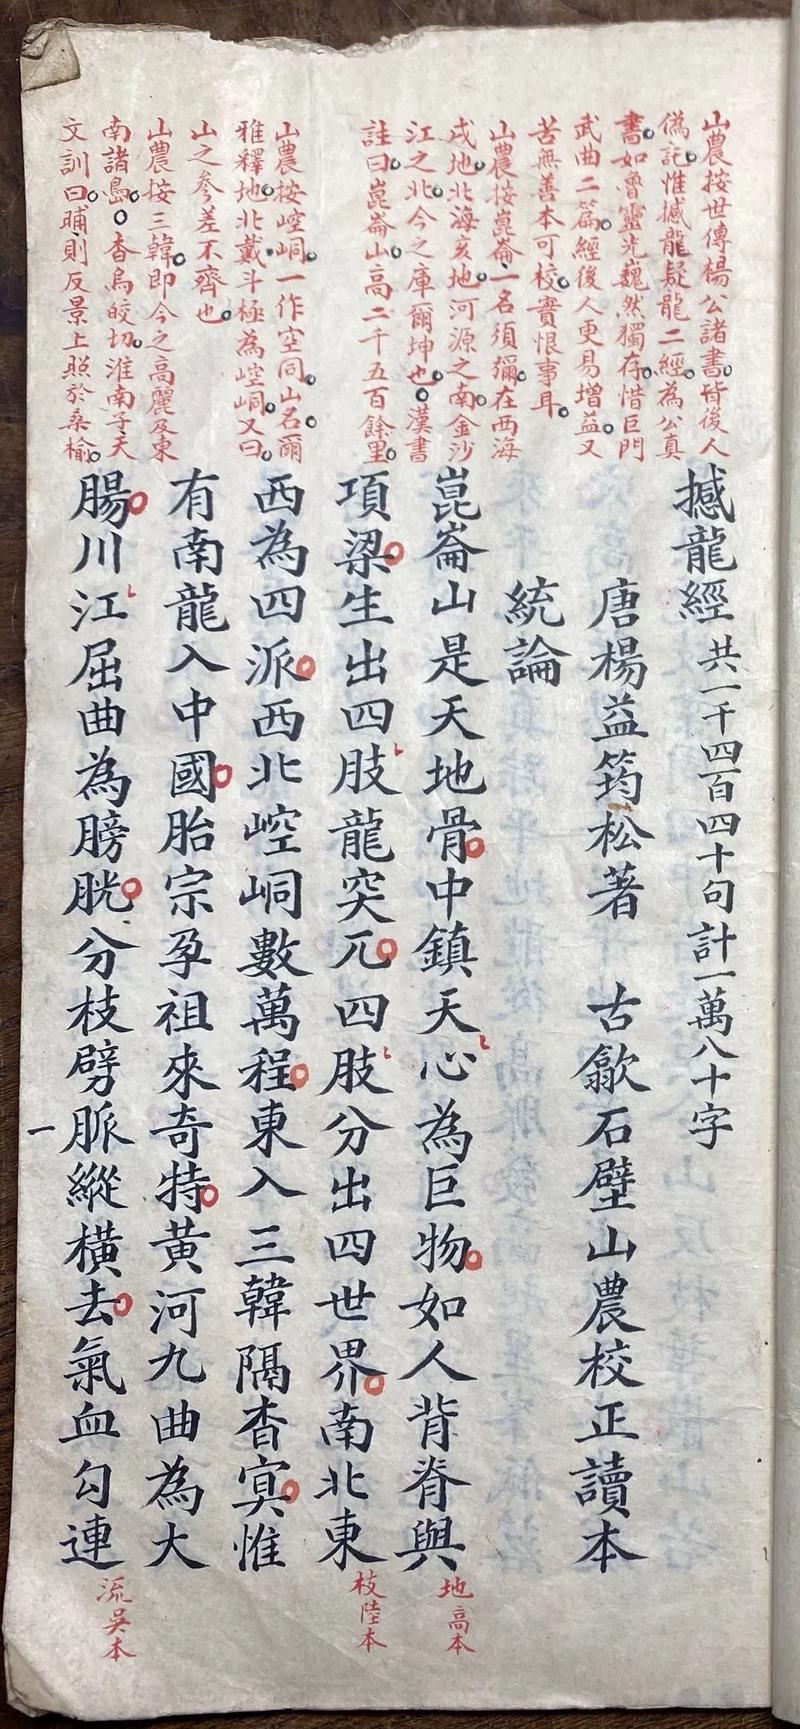 山農按世傳楊公諸書皆後人
偽託惟撼龍疑龍二經為公真
書如魯靈光巍然獨存惜巨門
武曲二篇經後人更易增益又
苦無善本可校實恨事耳
山農按崑崙一名須彌在西海
戌地北海亥地河源之南金沙
江之北今之庫爾坤也漢書
註曰崑崙山高二千五百餘里
山農按崆峒一作空同山名爾
雅釋地北戴斗極為崆峒又曰
山之參差不齊也
山農按三韓即今之高麗及東
南諸島杳烏皎切淮南子天
文訓曰晡則反景上照於桑榆
撼龍經共一千四百四十句計一萬八十字
唐楊益筠松著 古歙石壁山農校正讀本
統論
崑崙山是天地骨中鎮天心為巨物如人背脊與
項梁生出四肢龍突兀四肢分出四世界南北東
西為四派西北崆峒數萬程東入三韓隔杳冥惟
有南龍入中國胎宗孕祖來奇特黃河九曲為大
腸川江屈曲為膀胱分枝劈脈縱橫去氣血勾連
地高本
枝陸本
流吳本
一